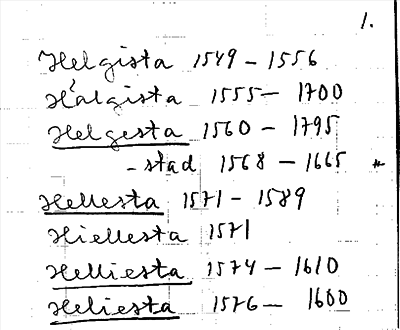 1.
Helgista 1549 - 1556
Hälgista 1555 - 1700
Helgesta 1560 - 1795
- stad 1568 - 1665 *
Hellesta 1571 - 1589
Hiellesta 1571
Helliesta 1574 - 1610
Heliesta 1576 - 1600